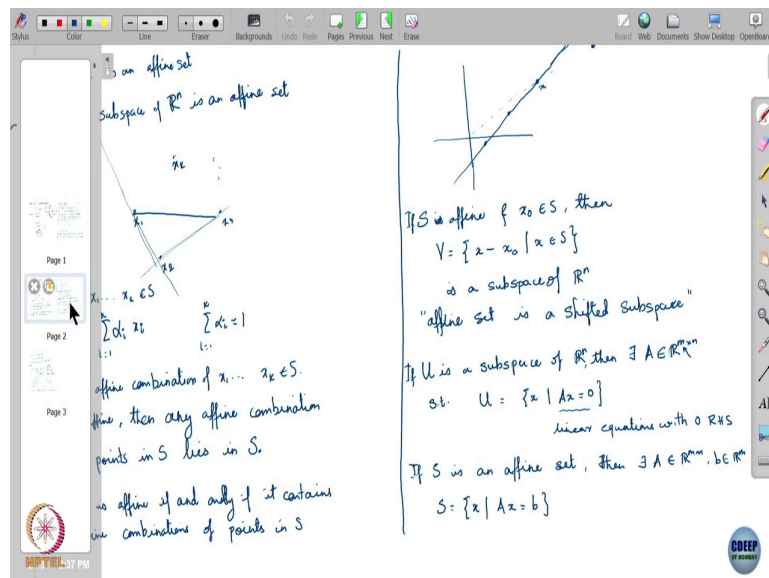 Stylus
Color
Line
Eraser
Backgrounds
Undo Redo
Pages Previous Next
Erase
Board Web Documents Show Desktop OpenBoar
Page 1
Page 2
Page 3
is an affine set
subspace of ℝⁿ is an affine set
x_k
x₁
x₂
x₁ ... x_k ∈ S
k
∑ αᵢ xᵢ
i=1
k
∑ αᵢ = 1
i=1
affine combination of x₁ ... x_k ∈ S.
ffine, then any affine combination
points in S lies in S.
is affine if and only if it contains
ine combinations of points in S
x
If S is affine & x₀ ∈ S, then
V = {x - x₀ | x ∈ S}
is a subspace of ℝⁿ
"affine set is a shifted subspace"
If U is a subspace of ℝⁿ, then ∃ A ∈ ℝᵐˣⁿ
s.t. U = {x | Ax = 0}
linear equations with 0 RHS
If S is an affine set, then ∃ A ∈ ℝᵐˣⁿ, b ∈ ℝᵐ
S = {x | Ax = b}
NPTEL
:37 PM
CDEEP
IIT BOMBAY